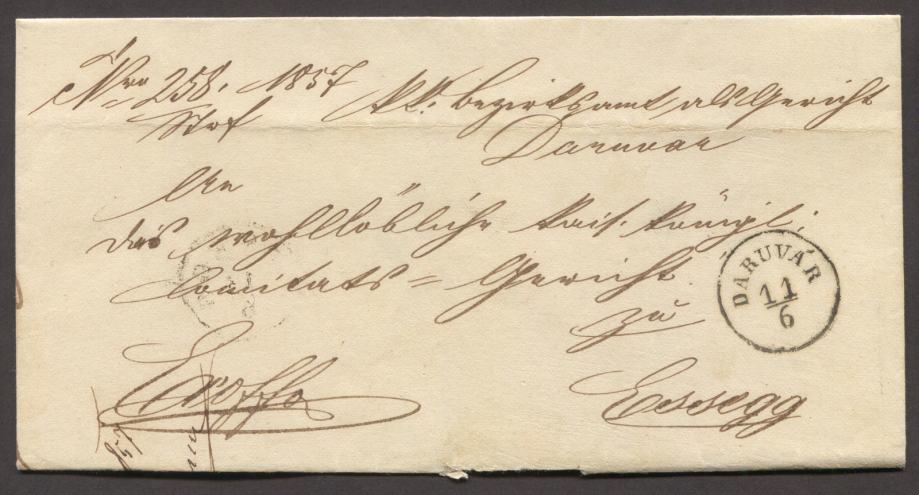 Nro 258. 1857
Strf
KK. Bezirksamt als Gericht
Daruvar
An
das wohllöbliche kais. königl.
Comitats = Gericht
zu
Essegg
DARUVÁR
11/6